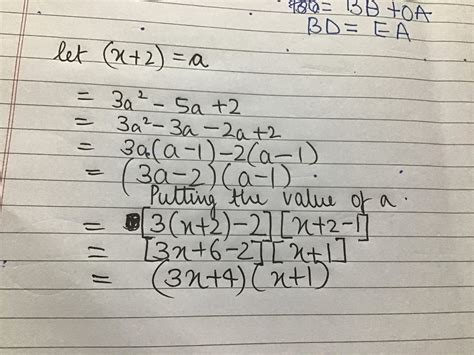 = BO + OA
BD = EA
let (x+2) = a
= 3a² - 5a + 2
= 3a² - 3a - 2a + 2
= 3a(a-1) - 2(a-1)
= (3a-2)(a-1)
Putting the value of a.
= [3(x+2)-2][x+2-1]
= [3x+6-2][x+1]
= (3x+4)(x+1)